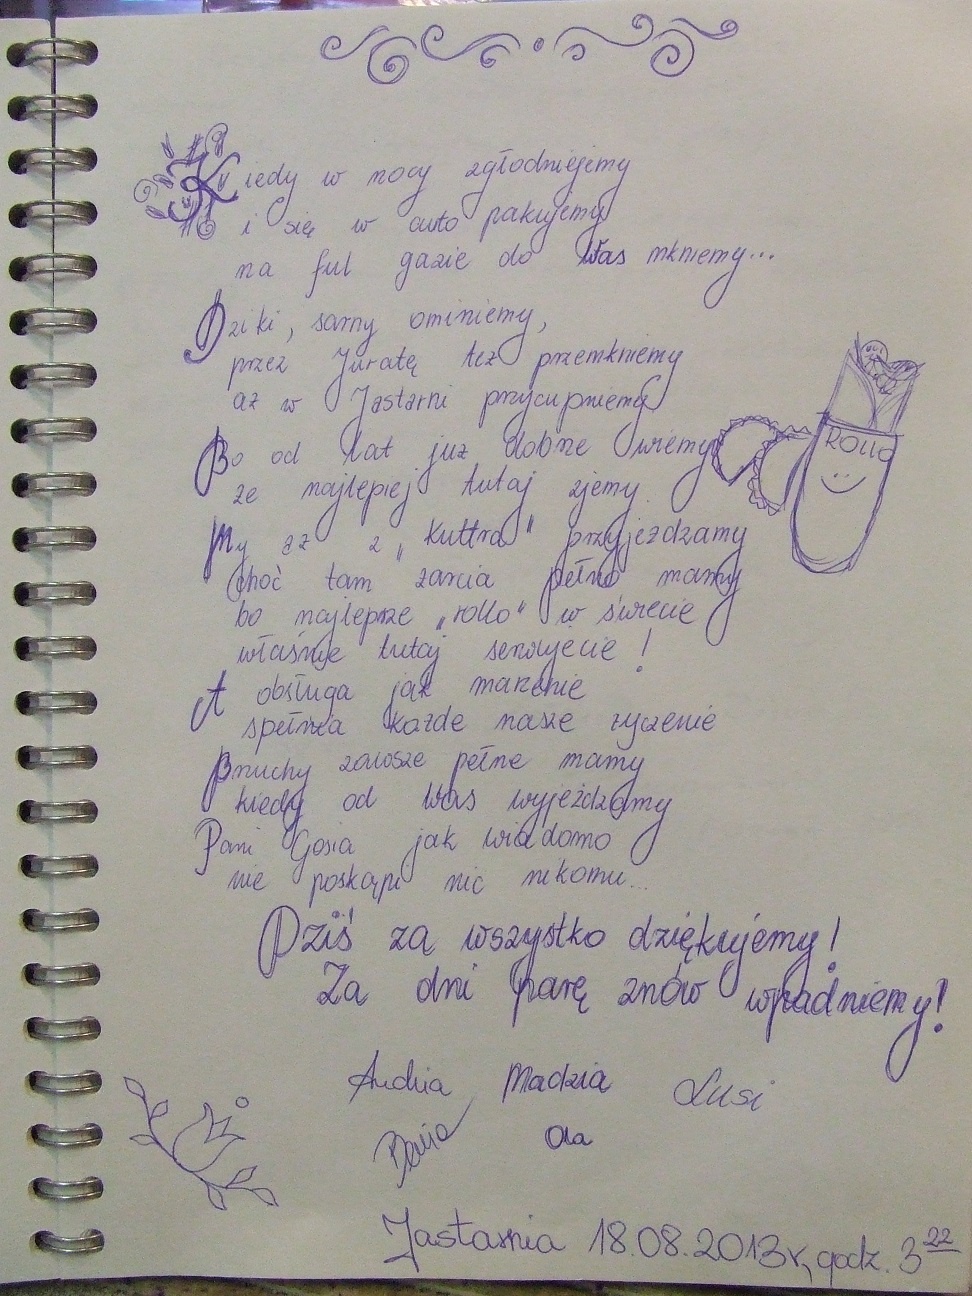 Kiedy w nocy zgłodniejemy
i się w auto pakujemy
na ful gazie do Was mkniemy...
Dziki, sarny ominiemy,
przez Juratę też przemkniemy
aż w Jastarni przycupniemy
Bo od lat już dobrze wiemy
że najlepiej tutaj zjemy.
My aż z "kuttra" przyjeżdzamy
Choć tam żarcia pełno mamy
bo najlepsze "rollo" w świecie
właśnie tutaj serwujecie!
A obsługa jak marzenie
spełnia każde nasze życzenie
Brzuchy zawsze pełne mamy
kiedy od Was wyjeżdzamy
Pani Gosia jak wiadomo
nie poskąpi nic nikomu...
Dziś za wszystko dziękujemy!
Za dni parę znów wpadniemy!
ROLLO
Madzia Lusi
Ola
Jastarnia 18.08.2013r, godz. 3 22